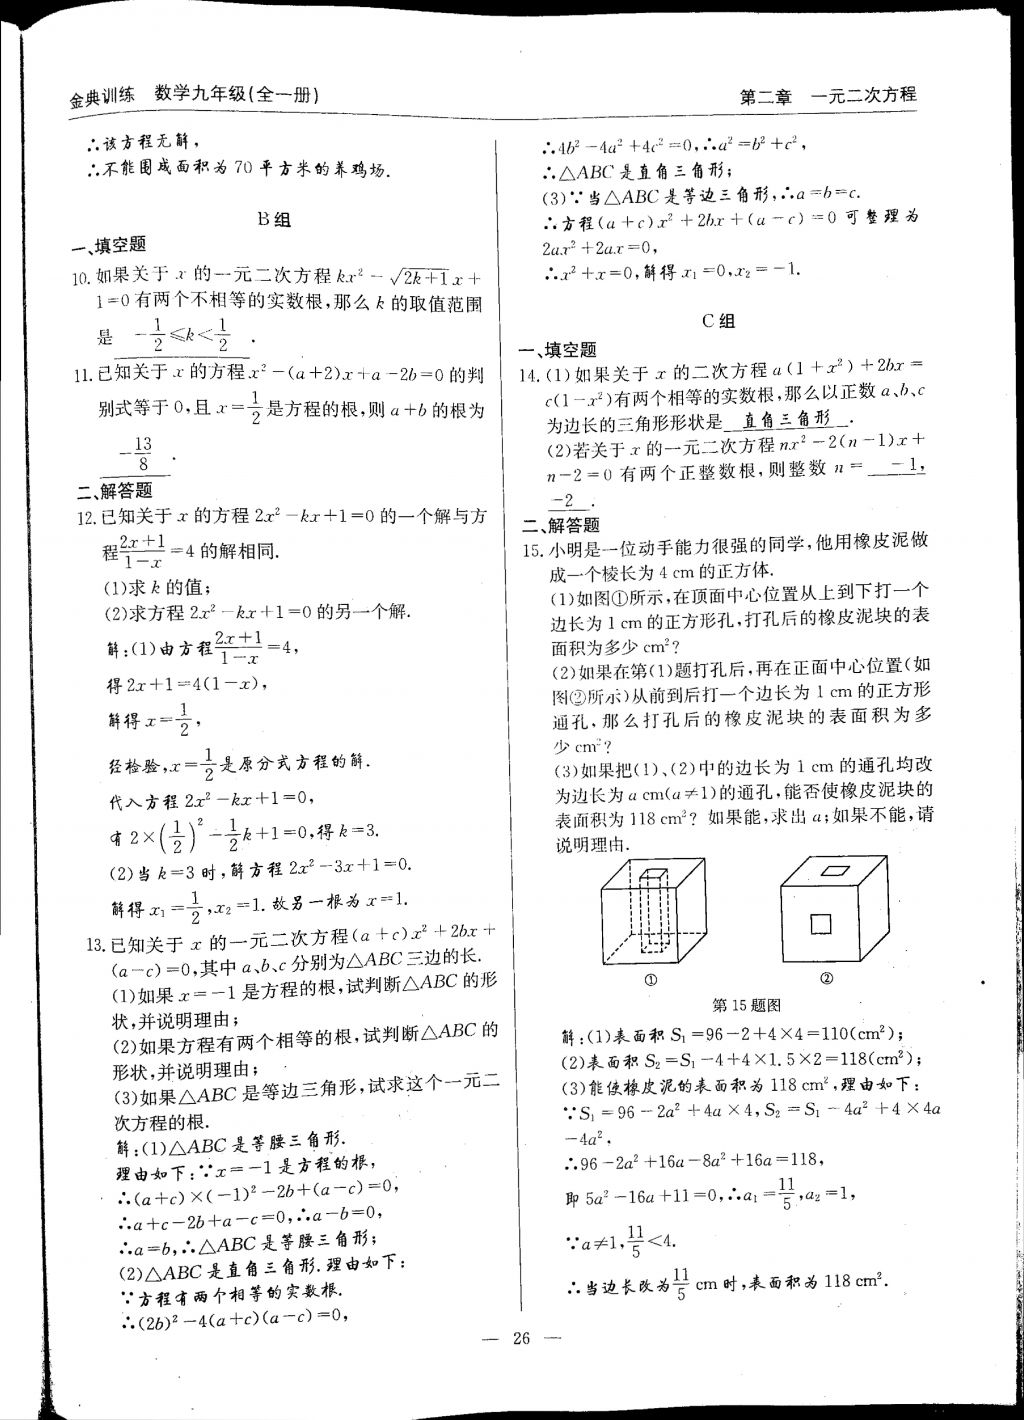 金典训练 数学九年级(全一册)
第二章 一元二次方程
∴该方程无解，
∴不能围成面积为70平方米的养鸡场.
B组
一、填空题
10.如果关于x的一元二次方程kx²－√(2k+1)x＋
1=0有两个不相等的实数根,那么k的取值范围
是 －1/2≤k<1/2 .
11.已知关于x的方程x²－(a+2)x+a－2b=0的判
别式等于0,且x=1/2是方程的根,则a+b的根为
－13/8 .
二、解答题
12.已知关于x的方程2x²－kx+1=0的一个解与方
程(2x+1)/(1－x)=4的解相同.
(1)求k的值;
(2)求方程2x²－kx+1=0的另一个解.
解:(1)由方程(2x+1)/(1－x)=4,
得2x+1=4(1－x),
解得x=1/2,
经检验,x=1/2是原分式方程的解.
代入方程2x²－kx+1=0,
有2×(1/2)²－1/2k+1=0,得k=3.
(2)当k=3时,解方程2x²－3x+1=0.
解得x₁=1/2,x₂=1.故另一根为x=1.
13.已知关于x的一元二次方程(a+c)x²+2bx+
(a－c)=0,其中a、b、c分别为△ABC三边的长.
(1)如果x=－1是方程的根,试判断△ABC的形
状,并说明理由;
(2)如果方程有两个相等的根,试判断△ABC的
形状,并说明理由;
(3)如果△ABC是等边三角形,试求这个一元二
次方程的根.
解:(1)△ABC是等腰三角形.
理由如下:∵x=－1是方程的根,
∴(a+c)×(－1)²－2b+(a－c)=0,
∴a+c－2b+a－c=0,∴a－b=0,
∴a=b,∴△ABC是等腰三角形;
(2)△ABC是直角三角形.理由如下:
∵方程有两个相等的实数根.
∴(2b)²－4(a+c)(a－c)=0,
∴4b²－4a²+4c²=0,∴a²=b²+c²,
∴△ABC是直角三角形;
(3)∵当△ABC是等边三角形,∴a=b=c.
∴方程(a+c)x²+2bx+(a－c)=0可整理为
2ax²+2ax=0,
∴x²+x=0,解得x₁=0,x₂=－1.
C组
一、填空题
14.(1)如果关于x的二次方程a(1+x²)+2bx=
c(1－x²)有两个相等的实数根,那么以正数a、b、c
为边长的三角形形状是 直角三角形 .
(2)若关于x的一元二次方程nx²－2(n－1)x+
n－2=0有两个正整数根,则整数n= －1,
－2 .
二、解答题
15.小明是一位动手能力很强的同学,他用橡皮泥做
成一个棱长为4 cm的正方体.
(1)如图①所示,在顶面中心位置从上到下打一个
边长为1 cm的正方形孔,打孔后的橡皮泥块的表
面积为多少cm²?
(2)如果在第(1)题打孔后,再在正面中心位置(如
图②所示)从前到后打一个边长为1 cm的正方形
通孔,那么打孔后的橡皮泥块的表面积为多
少cm²?
(3)如果把(1)、(2)中的边长为1 cm的通孔均改
为边长为a cm(a≠1)的通孔,能否使橡皮泥块的
表面积为118 cm²? 如果能,求出a;如果不能,请
说明理由.
① ②
第15题图
解:(1)表面积S₁=96－2+4×4=110(cm²);
(2)表面积S₂=S₁－4+4×1.5×2=118(cm²);
(3)能使橡皮泥的表面积为118 cm²,理由如下:
∵S₁=96－2a²+4a×4,S₂=S₁－4a²+4×4a
－4a²,
∴96－2a²+16a－8a²+16a=118,
即5a²－16a+11=0,∴a₁=11/5,a₂=1,
∵a≠1,11/5<4.
∴当边长改为11/5 cm时,表面积为118 cm².
— 26 —